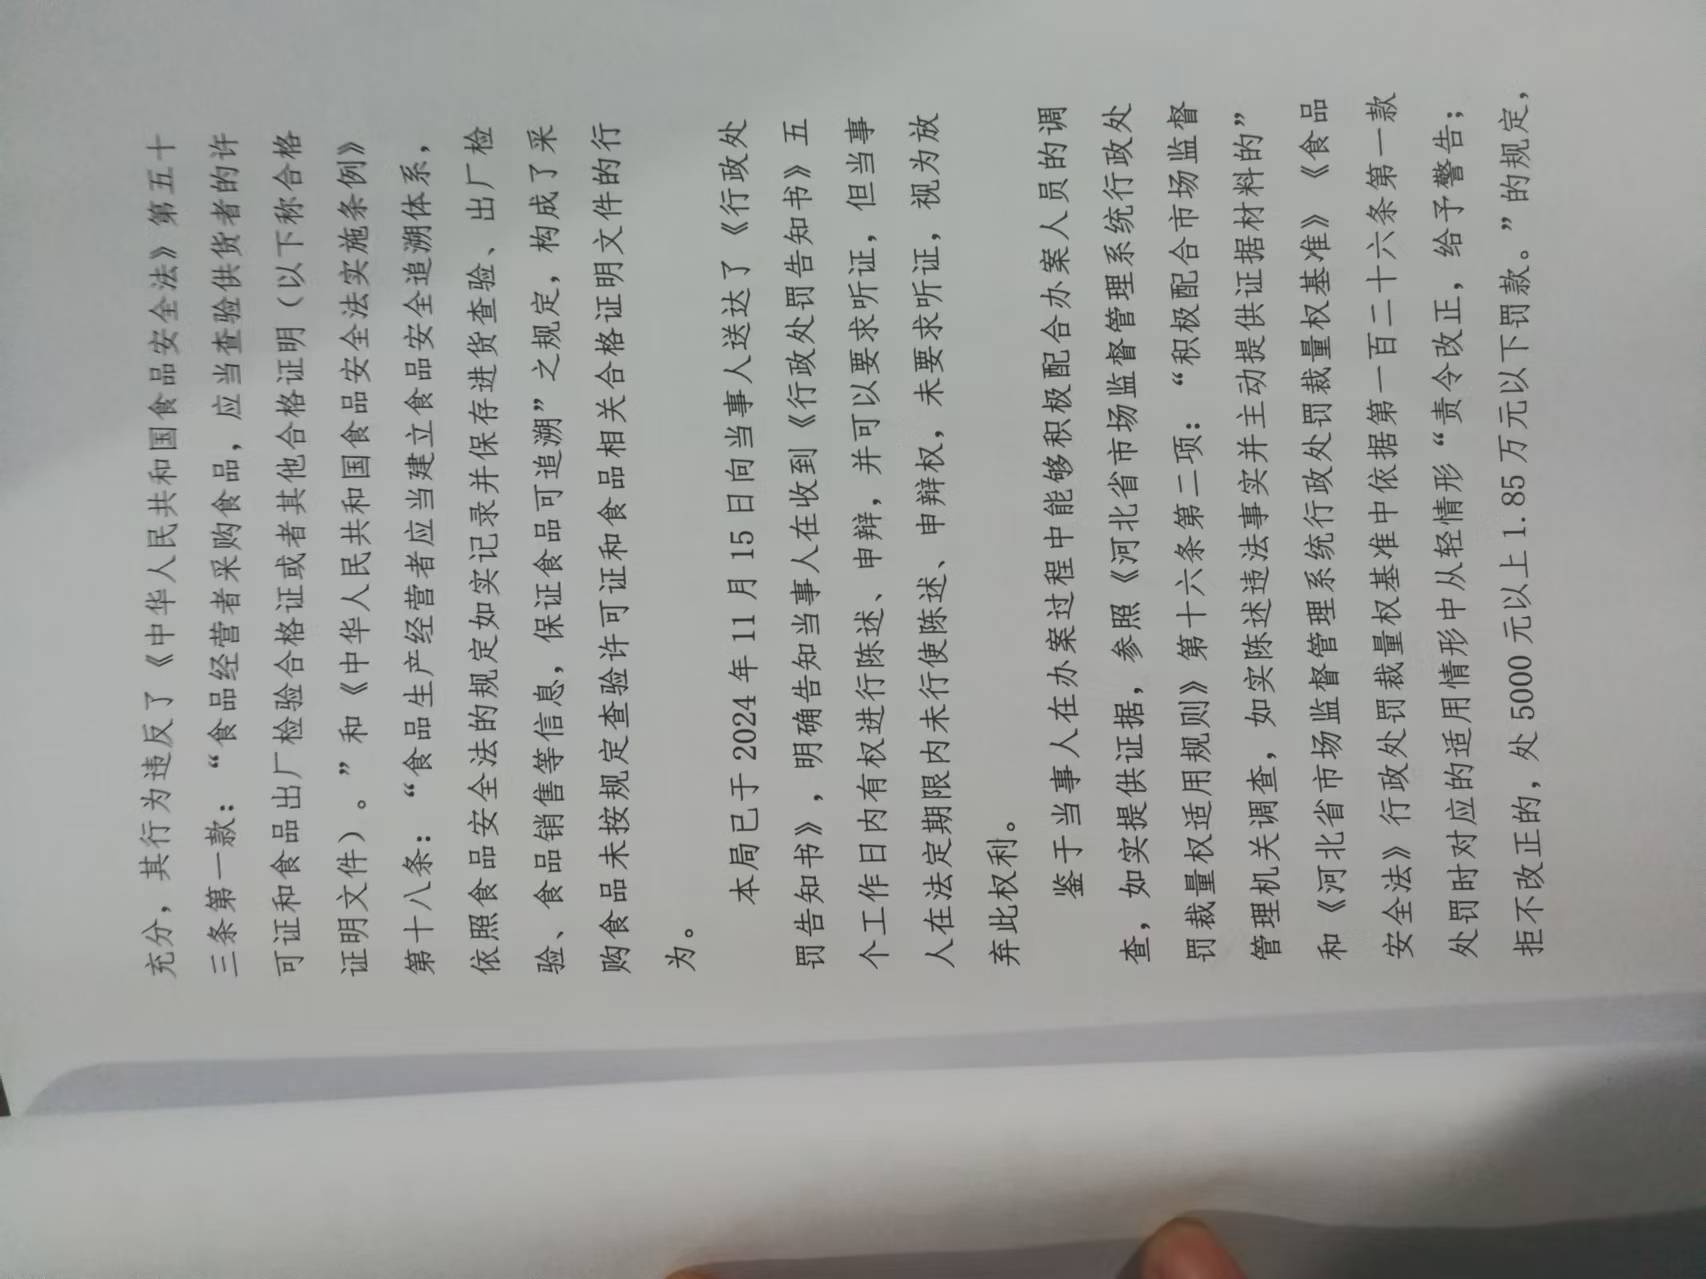 充分，其行为违反了《中华人民共和国食品安全法》第五十
三条第一款：“食品经营者采购食品，应当查验供货者的许
可证和食品出厂检验合格证或者其他合格证明（以下称合格
证明文件）。”和《中华人民共和国食品安全法实施条例》
第十八条：“食品生产经营者应当建立食品安全追溯体系，
依照食品安全法的规定如实记录并保存进货查验、出厂检
验、食品销售等信息，保证食品可追溯”之规定，构成了采
购食品未按规定查验许可证和食品相关合格证明文件的行
为。
本局已于2024年11月15日向当事人送达了《行政处
罚告知书》，明确告知当事人在收到《行政处罚告知书》五
个工作日内有权进行陈述、申辩，并可以要求听证，但当事
人在法定期限内未行使陈述、申辩权，未要求听证，视为放
弃此权利。
鉴于当事人在办案过程中能够积极配合办案人员的调
查，如实提供证据，参照《河北省市场监督管理系统行政处
罚裁量权适用规则》第十六条第二项：“积极配合市场监督
管理机关调查，如实陈述违法事实并主动提供证据材料的”
和《河北省市场监督管理系统行政处罚裁量权基准》《食品
安全法》行政处罚裁量权基准中依据第一百二十六条第一款
处罚时对应的适用情形中从轻情形“责令改正，给予警告；
拒不改正的，处5000元以上1.85万元以下罚款。”的规定，